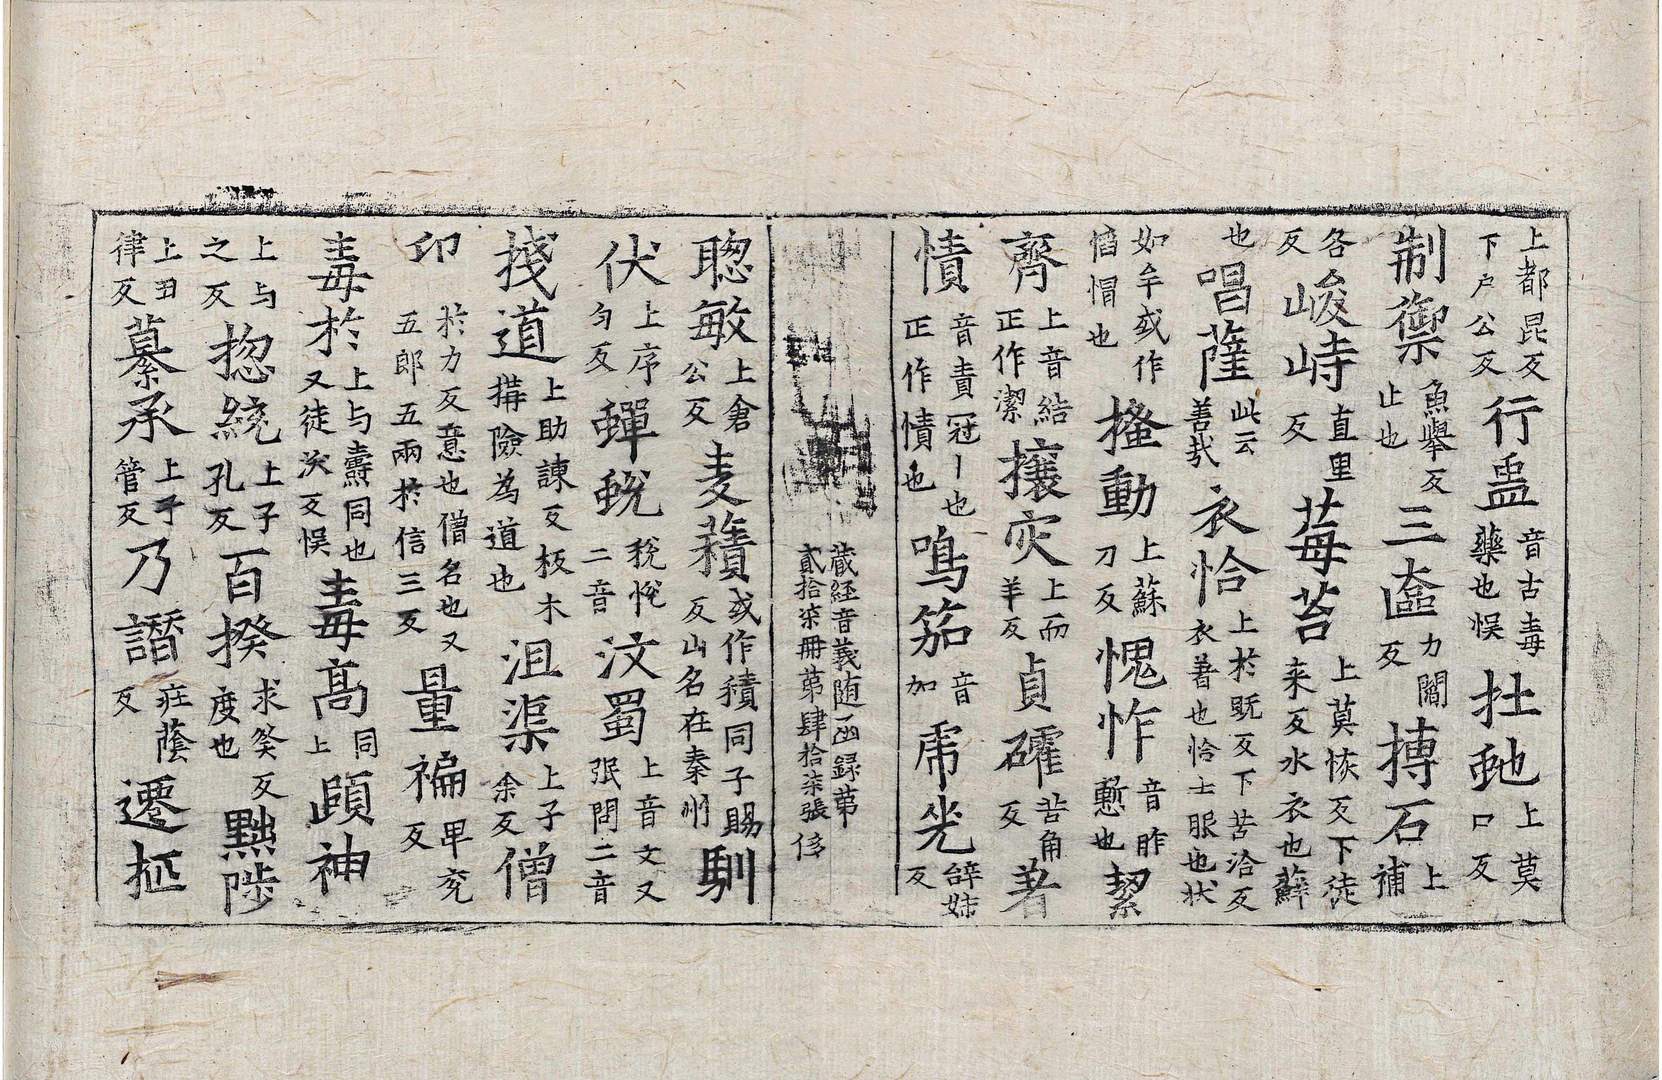 上都昆反下户公反行蛊音古毒藥也悮扗虵上莫口反
制禦魚舉反止也三𠥽力閻反搏石上補
各反峻峙直里反莓苔上莫恢反下徒来反水衣也蘇
也唱薩此云善㢤衣恰上於既反下苦洽反衣著也恰士服也状
如㡌或作㡌帽也搔動上蘇刀反愧怍音昨慙也絜
齊上音結正作潔攘灾上而羊反貞礭苦角反著
憒音責冠丨也正作幘也鳴笳音加虒光辝姊反
藏経音義随函録苐貳拾柒冊苐肆拾柒張 侈
聦敏上倉公反麦䕆或作積同子賜反山名在秦州馴
伏上序匀反蟬蛻稅悅二音汶蜀上音文又弡問二音
㧻道上助諫反板木搆險為道也沮渠上子余反僧
卬於力反意也僧名也又五郎五兩於信三反量褊𤰞兖反
毒於上与夀同也又徒沃反悮毒髙同上頥神
上与之反揔統上子孔反百揆求癸反度也黜陟
上丑律反纂承上子管反乃譖庄䕃反遷抠